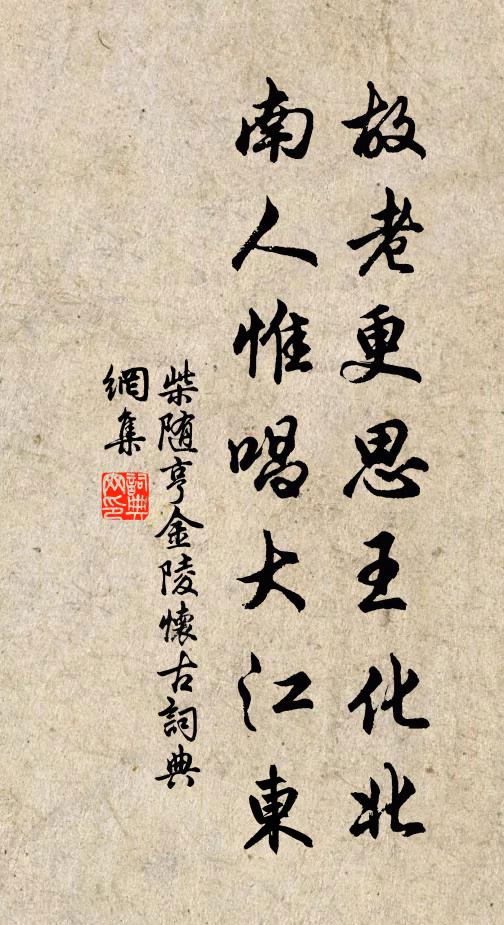 故老更思王化北
南人惟唱大江東
柴随亨金陵懷古詞典
網集
詞典網印